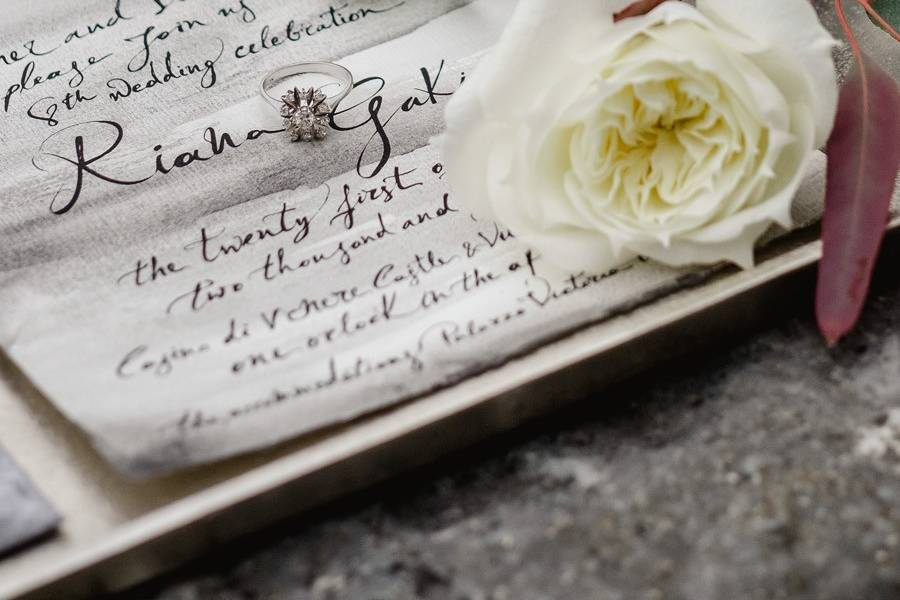 and
please join us
8th wedding celebration
Riana Gaki
the twenty first
two thousand and
di Venere Castle &
one o'clock in the af
the accommodations Palazzo Victoria